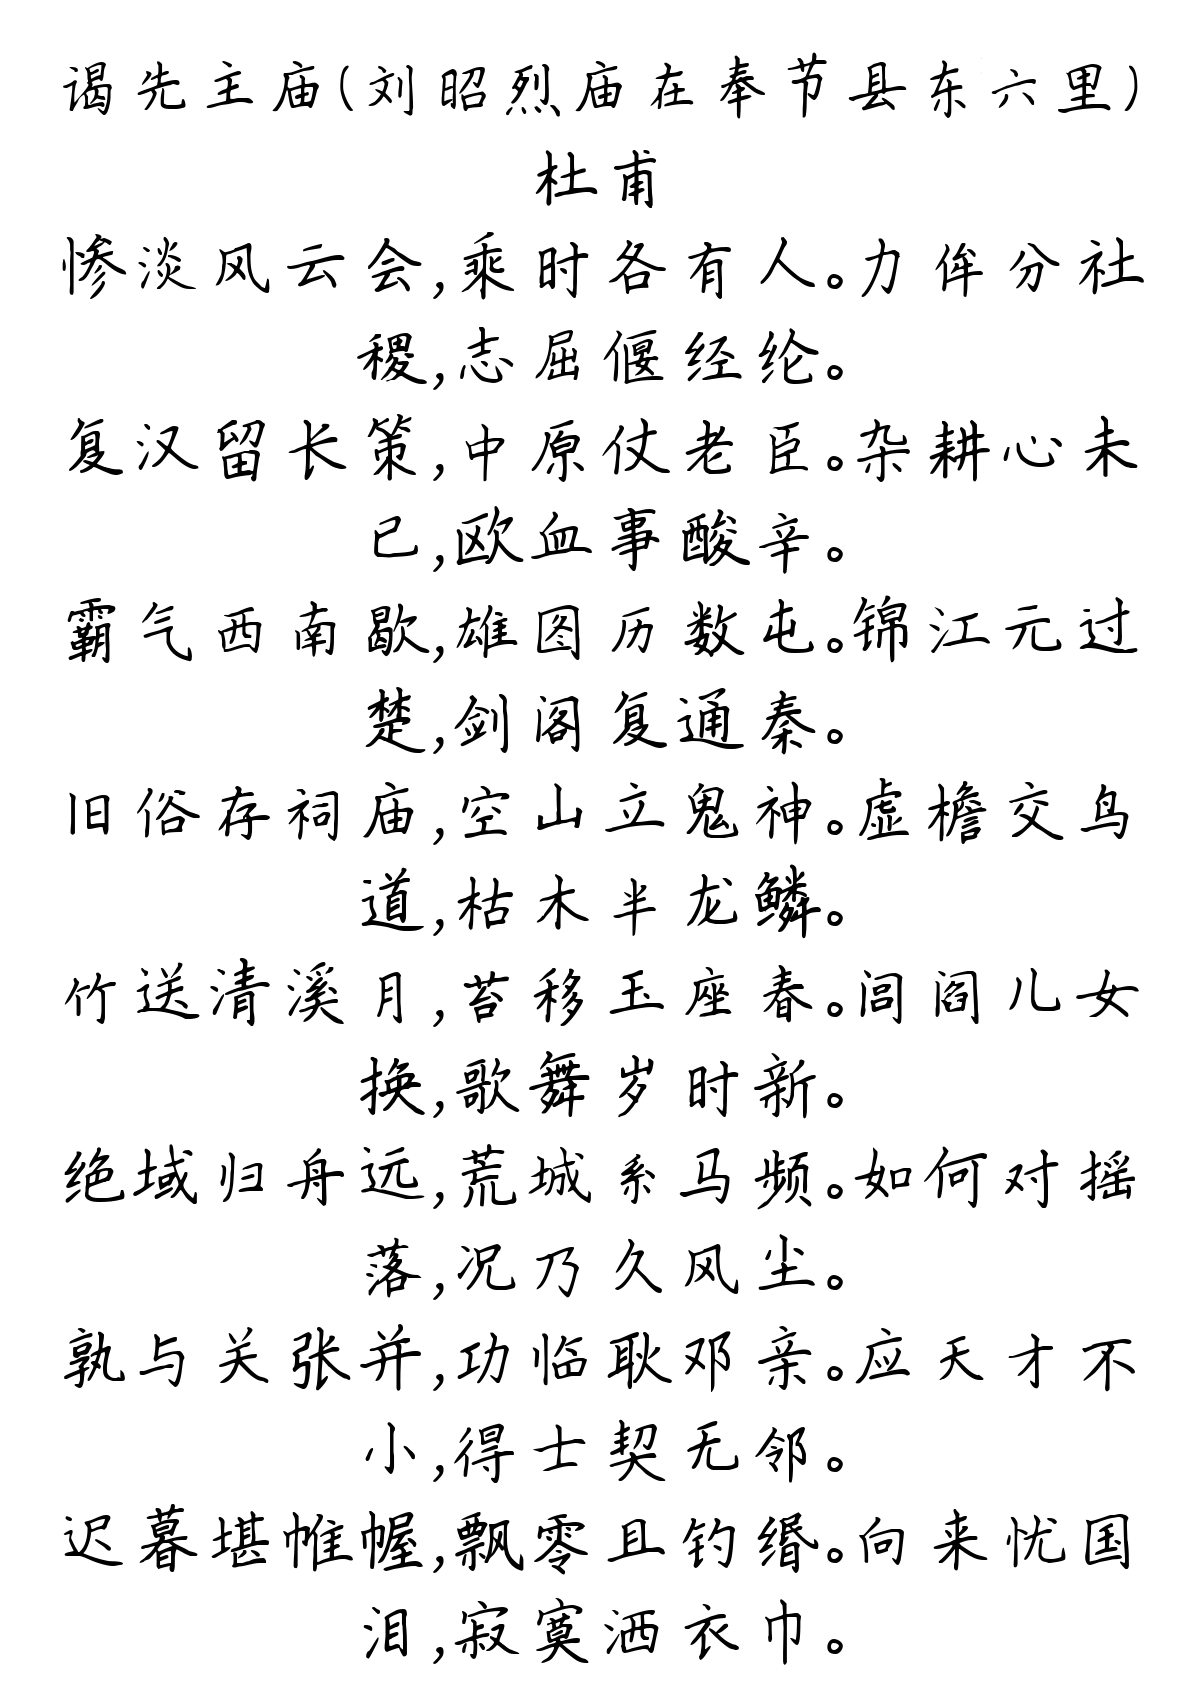 谒先主庙(刘昭烈庙在奉节县东六里)
杜甫
惨淡风云会,乘时各有人。力侔分社
稷,志屈偃经纶。
复汉留长策,中原仗老臣。杂耕心未
已,欧血事酸辛。
霸气西南歇,雄图历数屯。锦江元过
楚,剑阁复通秦。
旧俗存祠庙,空山立鬼神。虚檐交鸟
道,枯木半龙鳞。
竹送清溪月,苔移玉座春。闾阎儿女
换,歌舞岁时新。
绝域归舟远,荒城系马频。如何对摇
落,况乃久风尘。
孰与关张并,功临耿邓亲。应天才不
小,得士契无邻。
迟暮堪帷幄,飘零且钓缗。向来忧国
泪,寂寞洒衣巾。